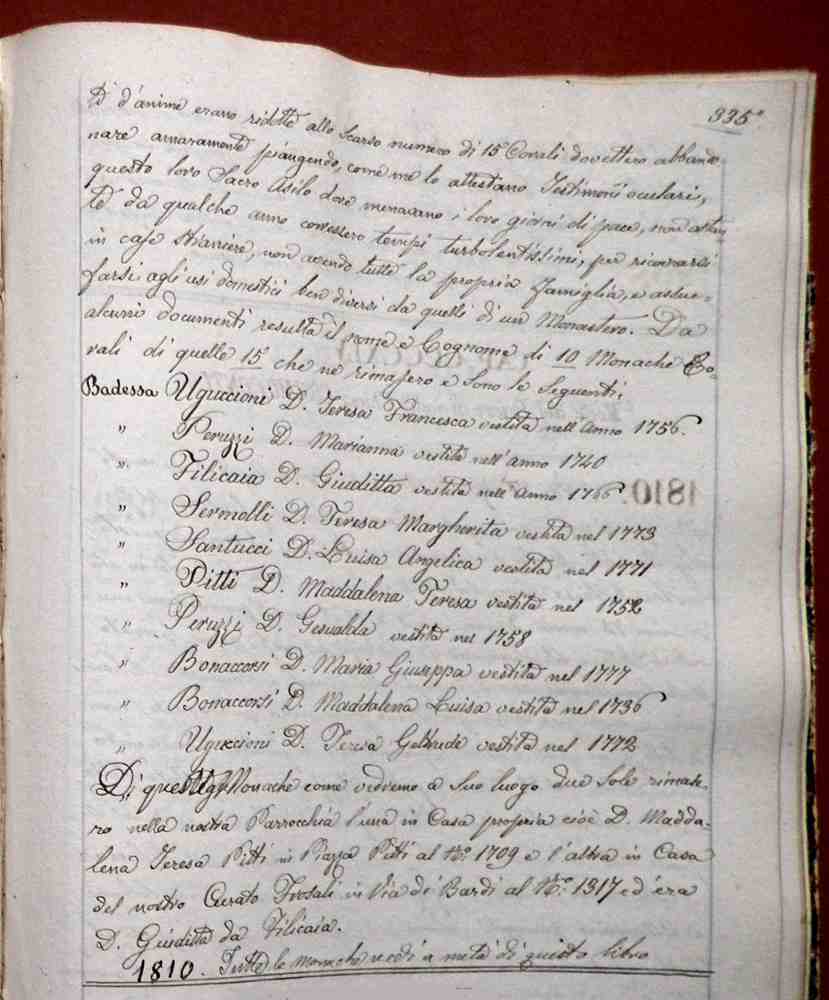 335.
d'anime erano ridotte allo scarso numero di 15 Corali dovettero abbando=
nare amaramente piangendo, come me lo attestano Testimoni oculari,
questo loro Sacro Asilo dove menavano i loro giorni di pace, non
da qualche anno corressero tempi turbolentissimi, per ricovrarsi
in case straniere, non avendo tutte la propria Famiglia, e assue=
farsi agli usi domestici ben diversi da quelli di un Monastero. Da
alcuni documenti resulta il nome e Cognome di 10 Monache Co=
rali di quelle 15 che ne rimasero e sono le seguenti.
Badessa Uguccioni D. Teresa Francesca vestita nell'Anno 1756.
" Peruzzi D. Marianna vestita nell'anno 1740
" Filicaia D. Giuditta vestita nell'Anno 1766
" Sermolli D. Teresa Margherita vestita nel 1773
" Santucci D. Luisa Angelica vestita nel 1771
" Pitti D. Maddalena Teresa vestita nel 1752
" Peruzzi D. Gesualda vestita nel 1758
" Bonaccorsi D. Maria Giuseppa vestita nel 1777
" Bonaccorsi D. Maddalena Luisa vestita nel 1736
" Uguccioni D. Teresa Geltrude vestita nel 1772
Di queste Monache come vedremo a suo luogo due sole rimase=
ro nella nostra Parrocchia l'una in Casa propria cioè D. Madda=
lena Teresa Pitti in Piazza Pitti al N.º 1709 e l'altra in Casa
del nostro Curato Frosali in Via di Bardi al N.º 1317 ed era
D. Giuditta da Filicaia.
1810. Tutte le monache vedi a metà di questo libro